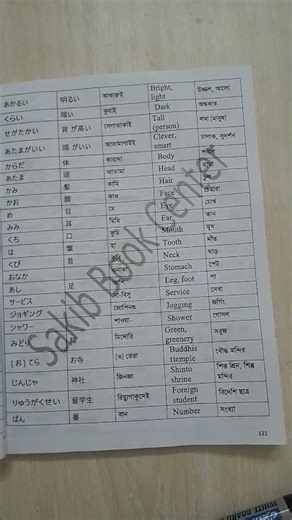 あかるい 明るい আকারুই Bright, light উজ্জ্বল, আলো
くらい 暗い কুরাই Dark অন্ধকার
せがたかい 背が高い সেগাতাকাই Tall (person) লম্বা (মানুষ)
あたまがいい 頭がいい আতামাগাইই Clever, smart চালাক, সুদর্শন
からだ 体 কারাদা Body
あたま 頭 আতামা Head
かみ 髪 কামি Hair
かお 顔 কাও Face চেহারা
め 目 মে Eye চোখ
みみ 耳 মিমি Ear কান
くち 口 কুচি Mouth মুখ
は 葉 হা Tooth দাঁত
くび 首 Neck ঘাড়
おなか Stomach পেট
あし 足 Leg, foot পা
サービス Service সেবা
ジョギング জোগিনগু Jogging জগিং
シャワー শাওয়া- Shower গোসল
みどり মিদোরি Green, greenery সবুজ
[お]てら お寺 [ও] তেরা Buddhist ttemple বৌদ্ধ মন্দির
じんじゃ 神社 জিনজা Shinto shrine মন্দির
りゅうがくせい 留学生 রিয়ুগাকুসেই Foreign student বিদেশি ছাত্র
ばん 番 বান Number সংখ্যা
131
Sakib Book Center
WHITE BOARD